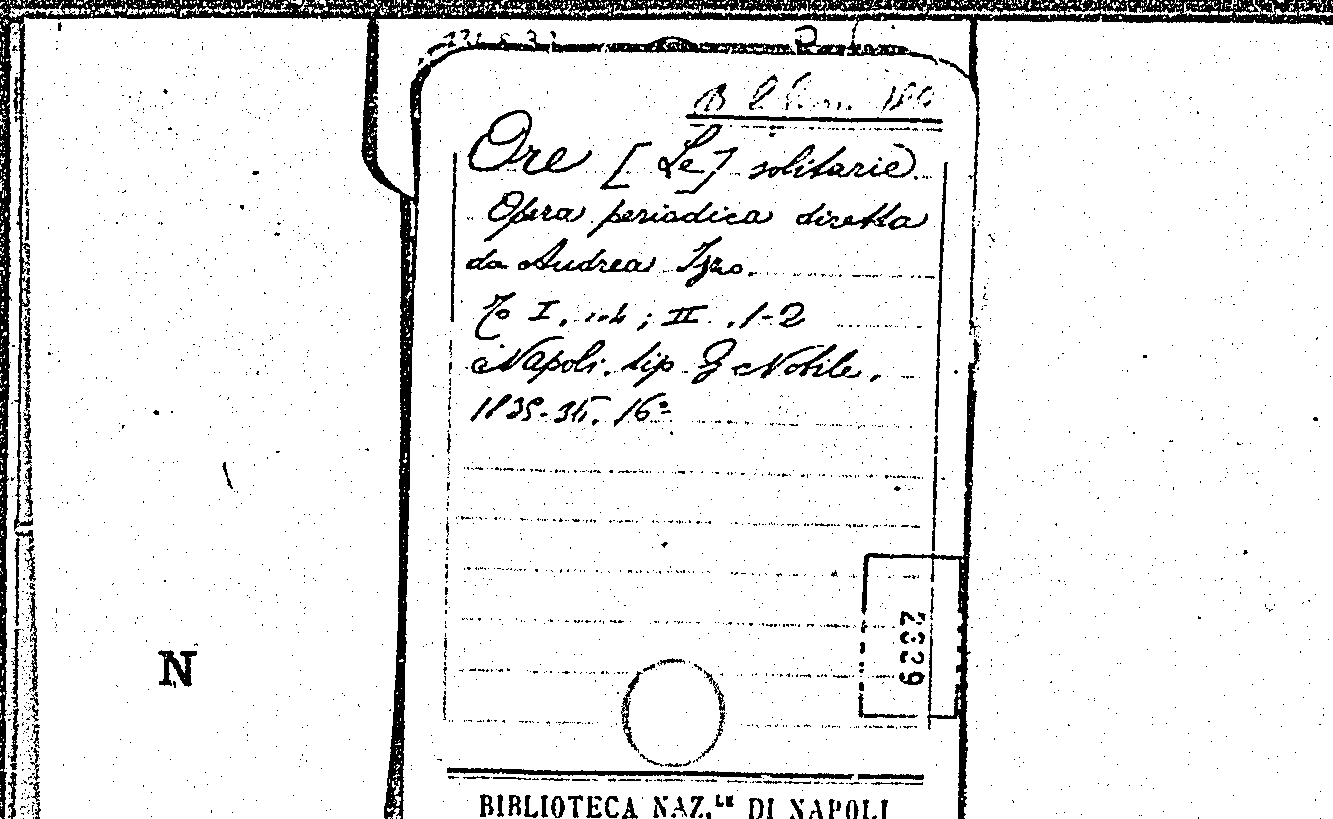 Ore [Le] solitarie
Opera periodica diretta
da Andrea Izzo.
To I. ; II. 1-2
Napoli. tip. G Nobile.
1835-36. 16º
2329
N
BIBLIOTECA NAZ.LE DI NAPOLI